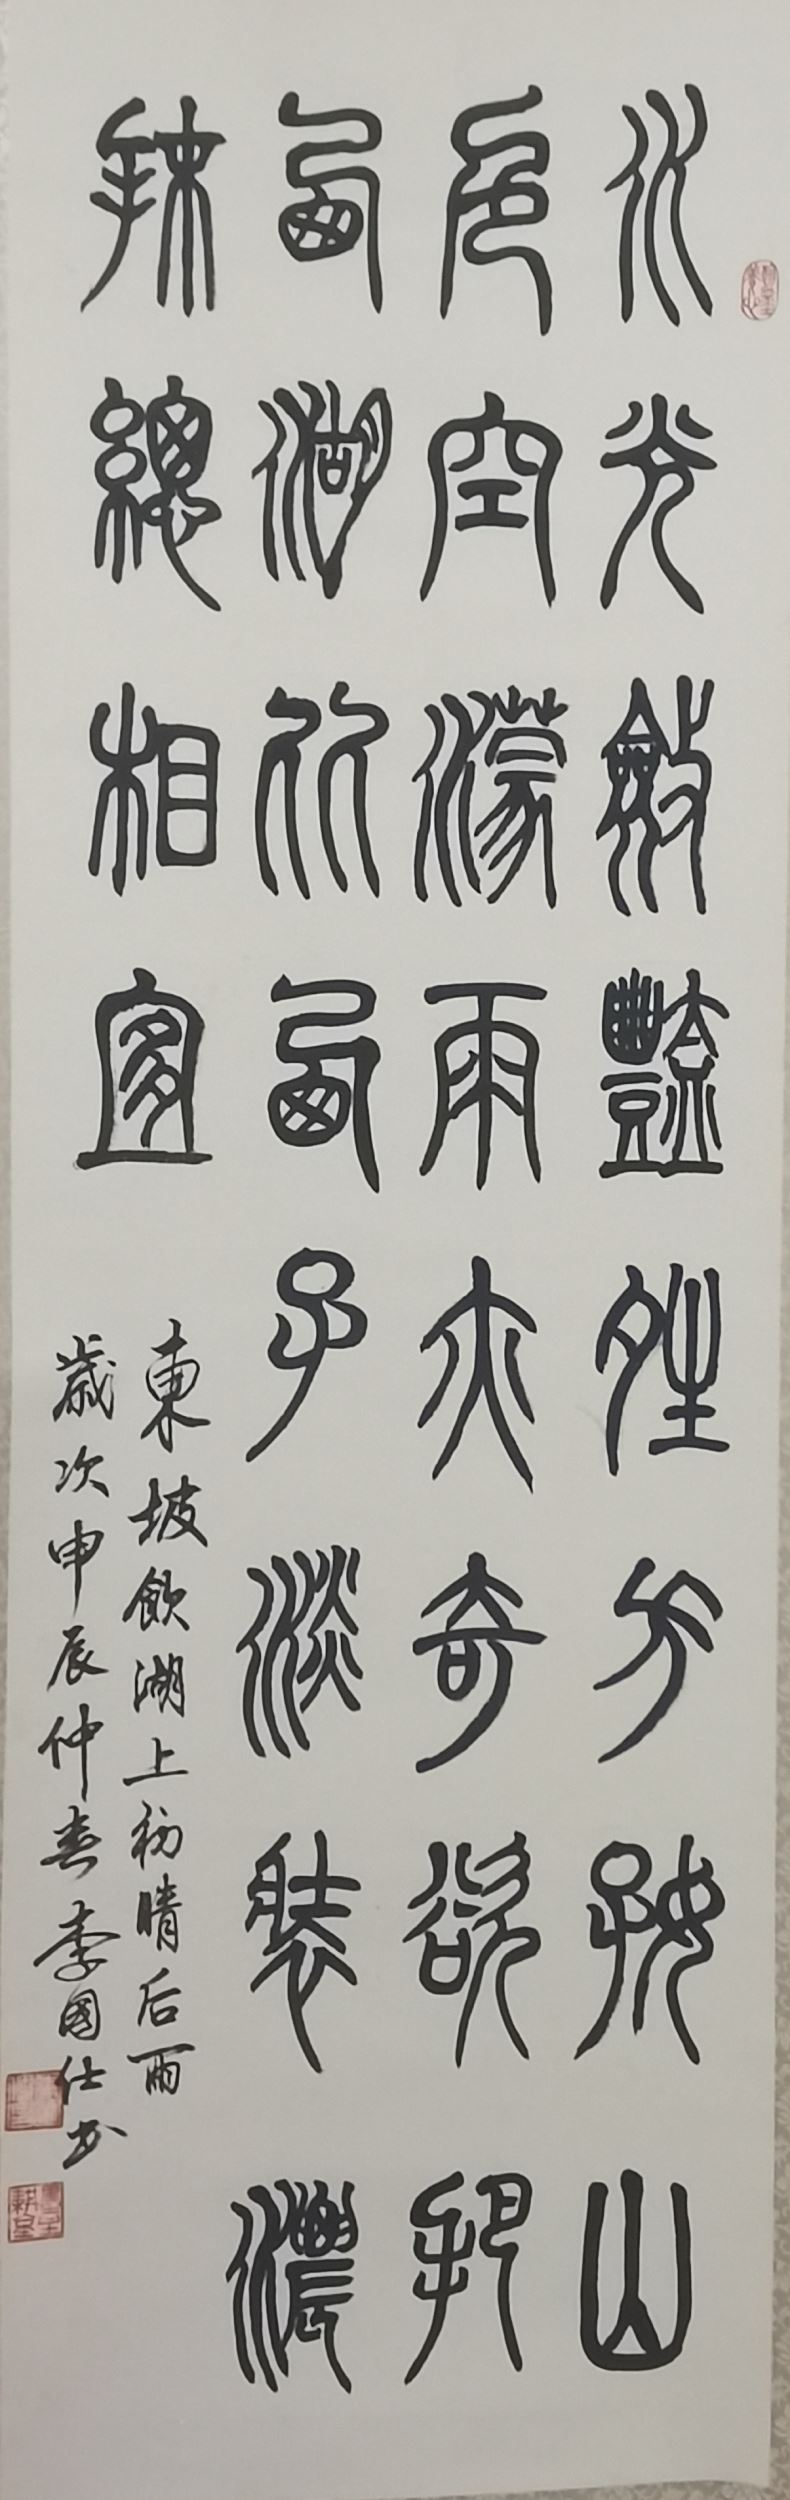 水光斂豔晴方好山
色空濛雨亦奇欲把
西湖比西子淡裝濃
抹總相宜
東坡飲湖上初晴后雨
歲次申辰仲春李國仕书